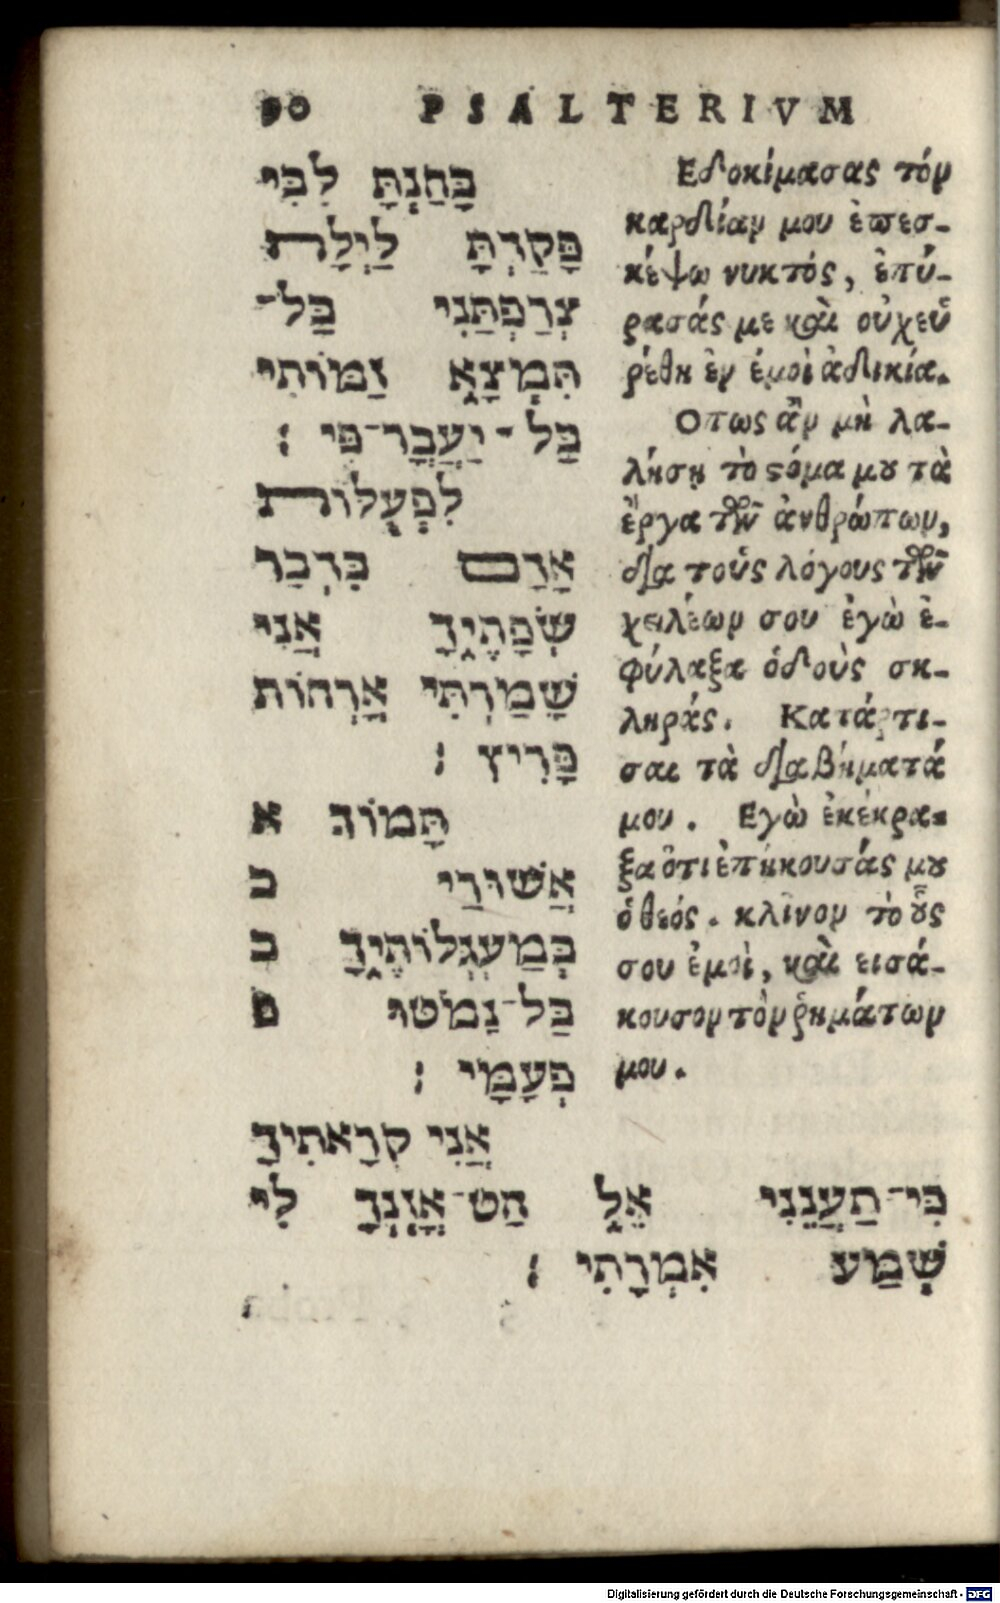 90 PSALTERIVM
בָּחַנְתָּ לִבִּי
פָּקַדְתָּ לַיְלָה
צְרַפְתַּנִי בַל־
תִּמְצָא זַמּוֹתִי
בַּל־יַעֲבָר־פִּי :
לִפְעֻלּוֹת
אָדָם בִּדְבַר
שְׂפָתֶיךָ אֲנִי
שָׁמַרְתִּי אָרְחוֹת
פָּרִיץ :
תָּמוֹךְ א
אֲשׁוּרַי ב
בְּמַעְגְּלוֹתֶיךָ ב
בַּל־נָמֹטּוּ
פְּעָמָי :
אֲנִי קְרָאתִיךָ
כִּי־תַעֲנֵנִי אֵל הַט־אָזְנְךָ לִי
שְׁמַע אִמְרָתִי :
Εδοκίμασας τὸν
καρδίαν μου ἐπεσ-
κέψω νυκτός, ἐπύ-
ρασάς με καὶ οὐχεὑ
ρέθη ἐν ἐμοὶ ἀδικία.
Οπως ἂν μὴ λα-
λήσῃ τὸ ϛόμα μου τὰ
ἔργα τῶν ἀνθρώπων,
δια τοὺς λόγους τῶν
χειλέων σου ἐγὼ ἐ-
φύλαξα ὁδοὺς σκ-
ληράς. Κατάρτι-
σαι τὰ διαβήματά
μου. Εγὼ ἐκέκρα-
ξα ὅτι ἐπήκουσάς μου
ὁ θεός. κλῖνον τὸ οὖς
σου ἐμοὶ, καὶ εισά-
κουσον τὸν ῥημάτων
μου.
Digitalisierung gefördert durch die Deutsche Forschungsgemeinschaft - DFG